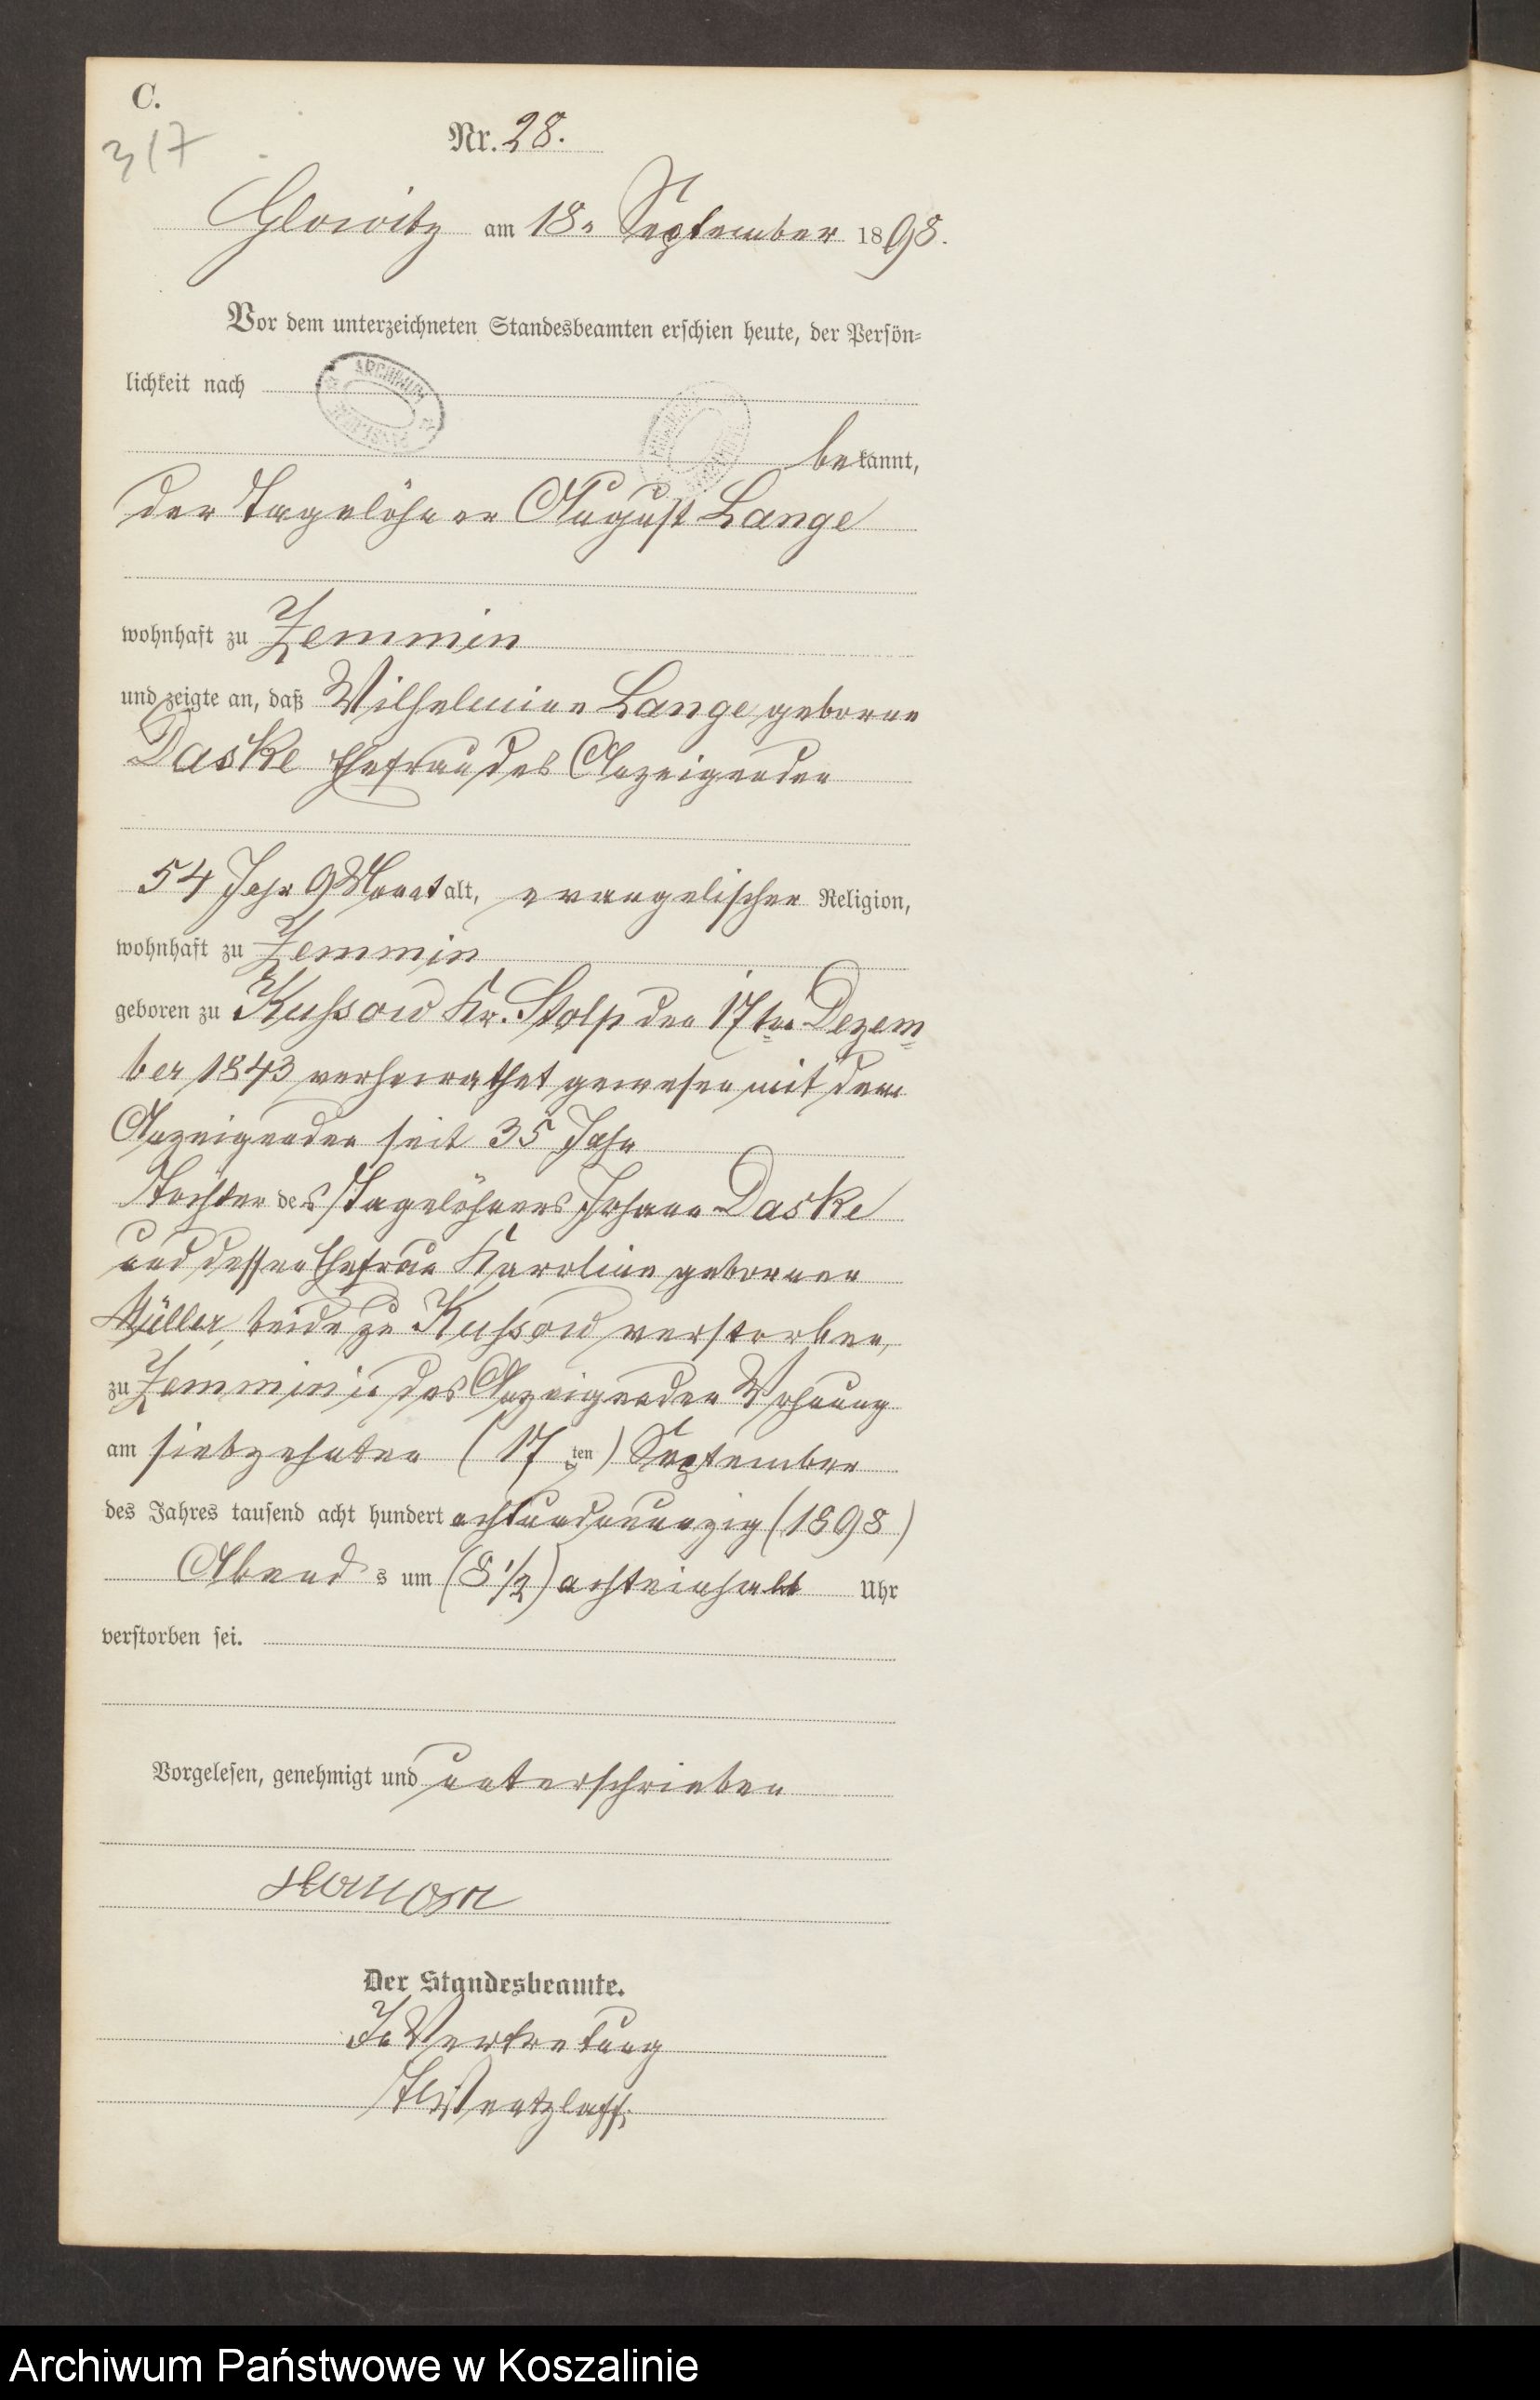 C.
317
Nr. 28.
Glowitz am 18. September 1898.
Vor dem unterzeichneten Standesbeamten erschien heute, der Persön-
lichkeit nach
ARCHIWUM
bekannt,
der Tagelöhner August Lange
wohnhaft zu Zemmin
und zeigte an, daß Wilhelmine Lange geborne
Daske Ehefrau des Anzeigenden
54 Jahr 9 Monat alt, evangelischer Religion,
wohnhaft zu Zemmin
geboren zu Kussow Kr. Stolp den 17ten Dezem
ber 1843 verheirathet gewesen mit dem
Anzeigenden seit 35 Jahr
Tochter des Tagelöhners Johann Daske
und dessen Ehefrau Karoline gebornen
Müller, beide zu Kussow verstorben,
zu Zemmin in des Anzeigenden Wohnung
am siebzehnten (17 ten) September
des Jahres tausend acht hundert achtundneunzig (1898)
Abend s um (8 1/2) achteinhalb Uhr
verstorben sei.
Vorgelesen, genehmigt und unterschrieben
Der Standesbeamte.
In Vertretung
Wentzlaff.
Archiwum Państwowe w Koszalinie